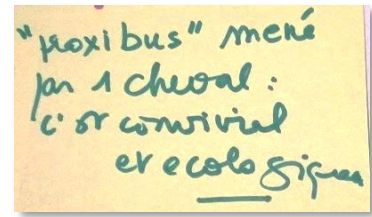 "proxibus" mené
par 1 cheval :
c'est convivial
et ecologique